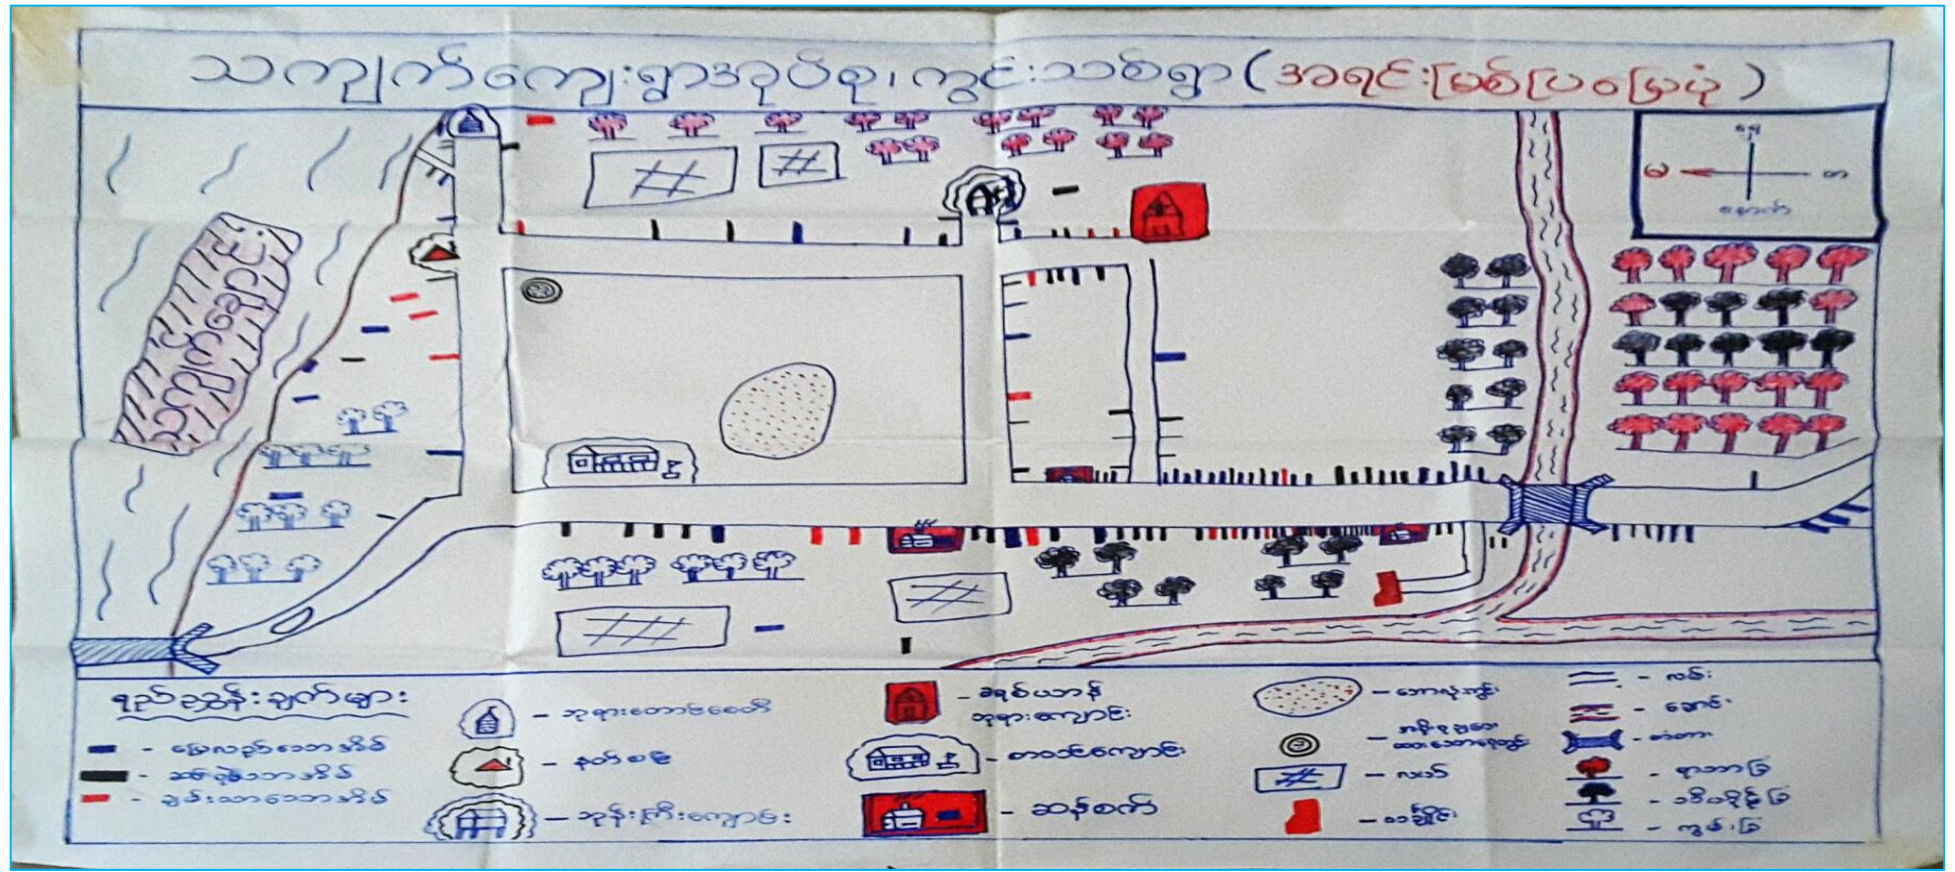 သကျက်ကျေးရွာအုပ်စု၊ ကွင်းသစ်ရွာ (အရင်းမြစ်ပြမြေပုံ)
ရှေ့
မ
တ
နောက်
သကျက်ရေလှောင်
ရည်ညွှန်းချက်များ
- မြေလည်သောအိမ်
- ဆင်းရဲသောအိမ်
- ချမ်းသာသောအိမ်
- ဘုရားတောင်စေတီ
- နတ်စင်
- ဘုန်းကြီးကျောင်း
- ခရစ်ယာန်
ဘုရားကျောင်း
- စာသင်ကျောင်း
- ဆန်စက်
- ဘောလုံးကွင်း
ရေတွင်း
- လယ်
- သင်္ချိုင်း
- လမ်း
- ချောင်း
- တံတား
- ရာဘာခြံ
- သီဟိုဠ်ခြံ
- ကွမ်းခြံ